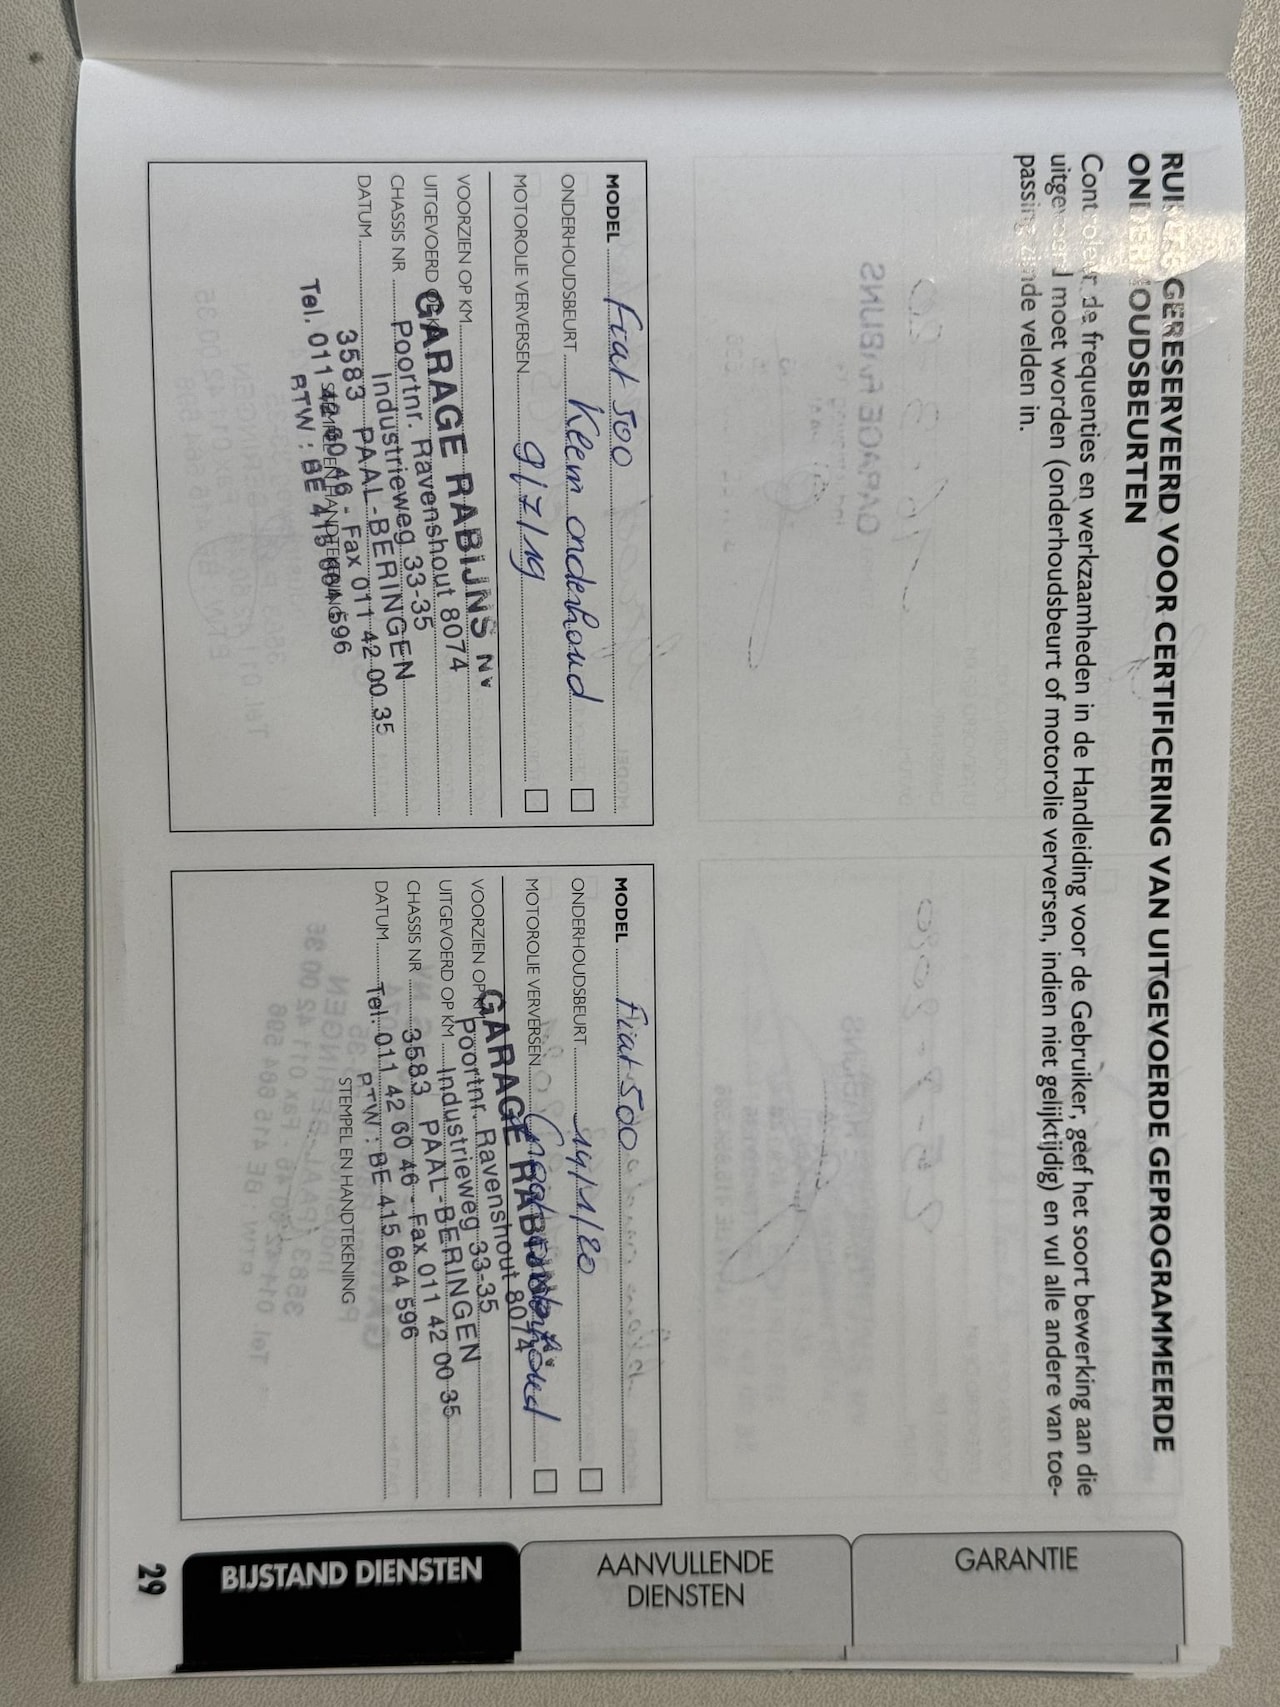 RUIMTE GERESERVEERD VOOR CERTIFICERING VAN UITGEVOERDE GEPROGRAMMEERDE
ONDERHOUDSBEURTEN
Controleer de frequenties en werkzaamheden in de Handleiding voor de Gebruiker, geef het soort bewerking aan die
uitgevoerd moet worden (onderhoudsbeurt of motorolie verversen, indien niet gelijktijdig) en vul alle andere van toe-
passing zijnde velden in.
MODEL Fiat 500
ONDERHOUDSBEURT Kleem onderhoud
MOTOROLIE VERVERSEN 9/7/19
VOORZIEN OP KM
UITGEVOERD OP KM
CHASSIS NR
DATUM
STEMPEL EN HANDTEKENING
GARAGE RABIJNS NV
Poortnr. Ravenshout 8074
Industrieweg 33-35
3583 PAAL-BERINGEN
Tel. 011 42 60 46 - Fax 011 42 00 35
BTW : BE 415 664 596
MODEL Fiat 500
ONDERHOUDSBEURT 14/1/20
MOTOROLIE VERVERSEN Groot onderhoud
VOORZIEN OP KM
UITGEVOERD OP KM
CHASSIS NR
DATUM
GARAGE RABIJNS NV
Poortnr. Ravenshout 8074
Industrieweg 33-35
3583 PAAL-BERINGEN
Tel. 011 42 60 46 - Fax 011 42 00 35
BTW : BE 415 664 596
STEMPEL EN HANDTEKENING
GARANTIE
AANVULLENDE
DIENSTEN
BIJSTAND DIENSTEN
29